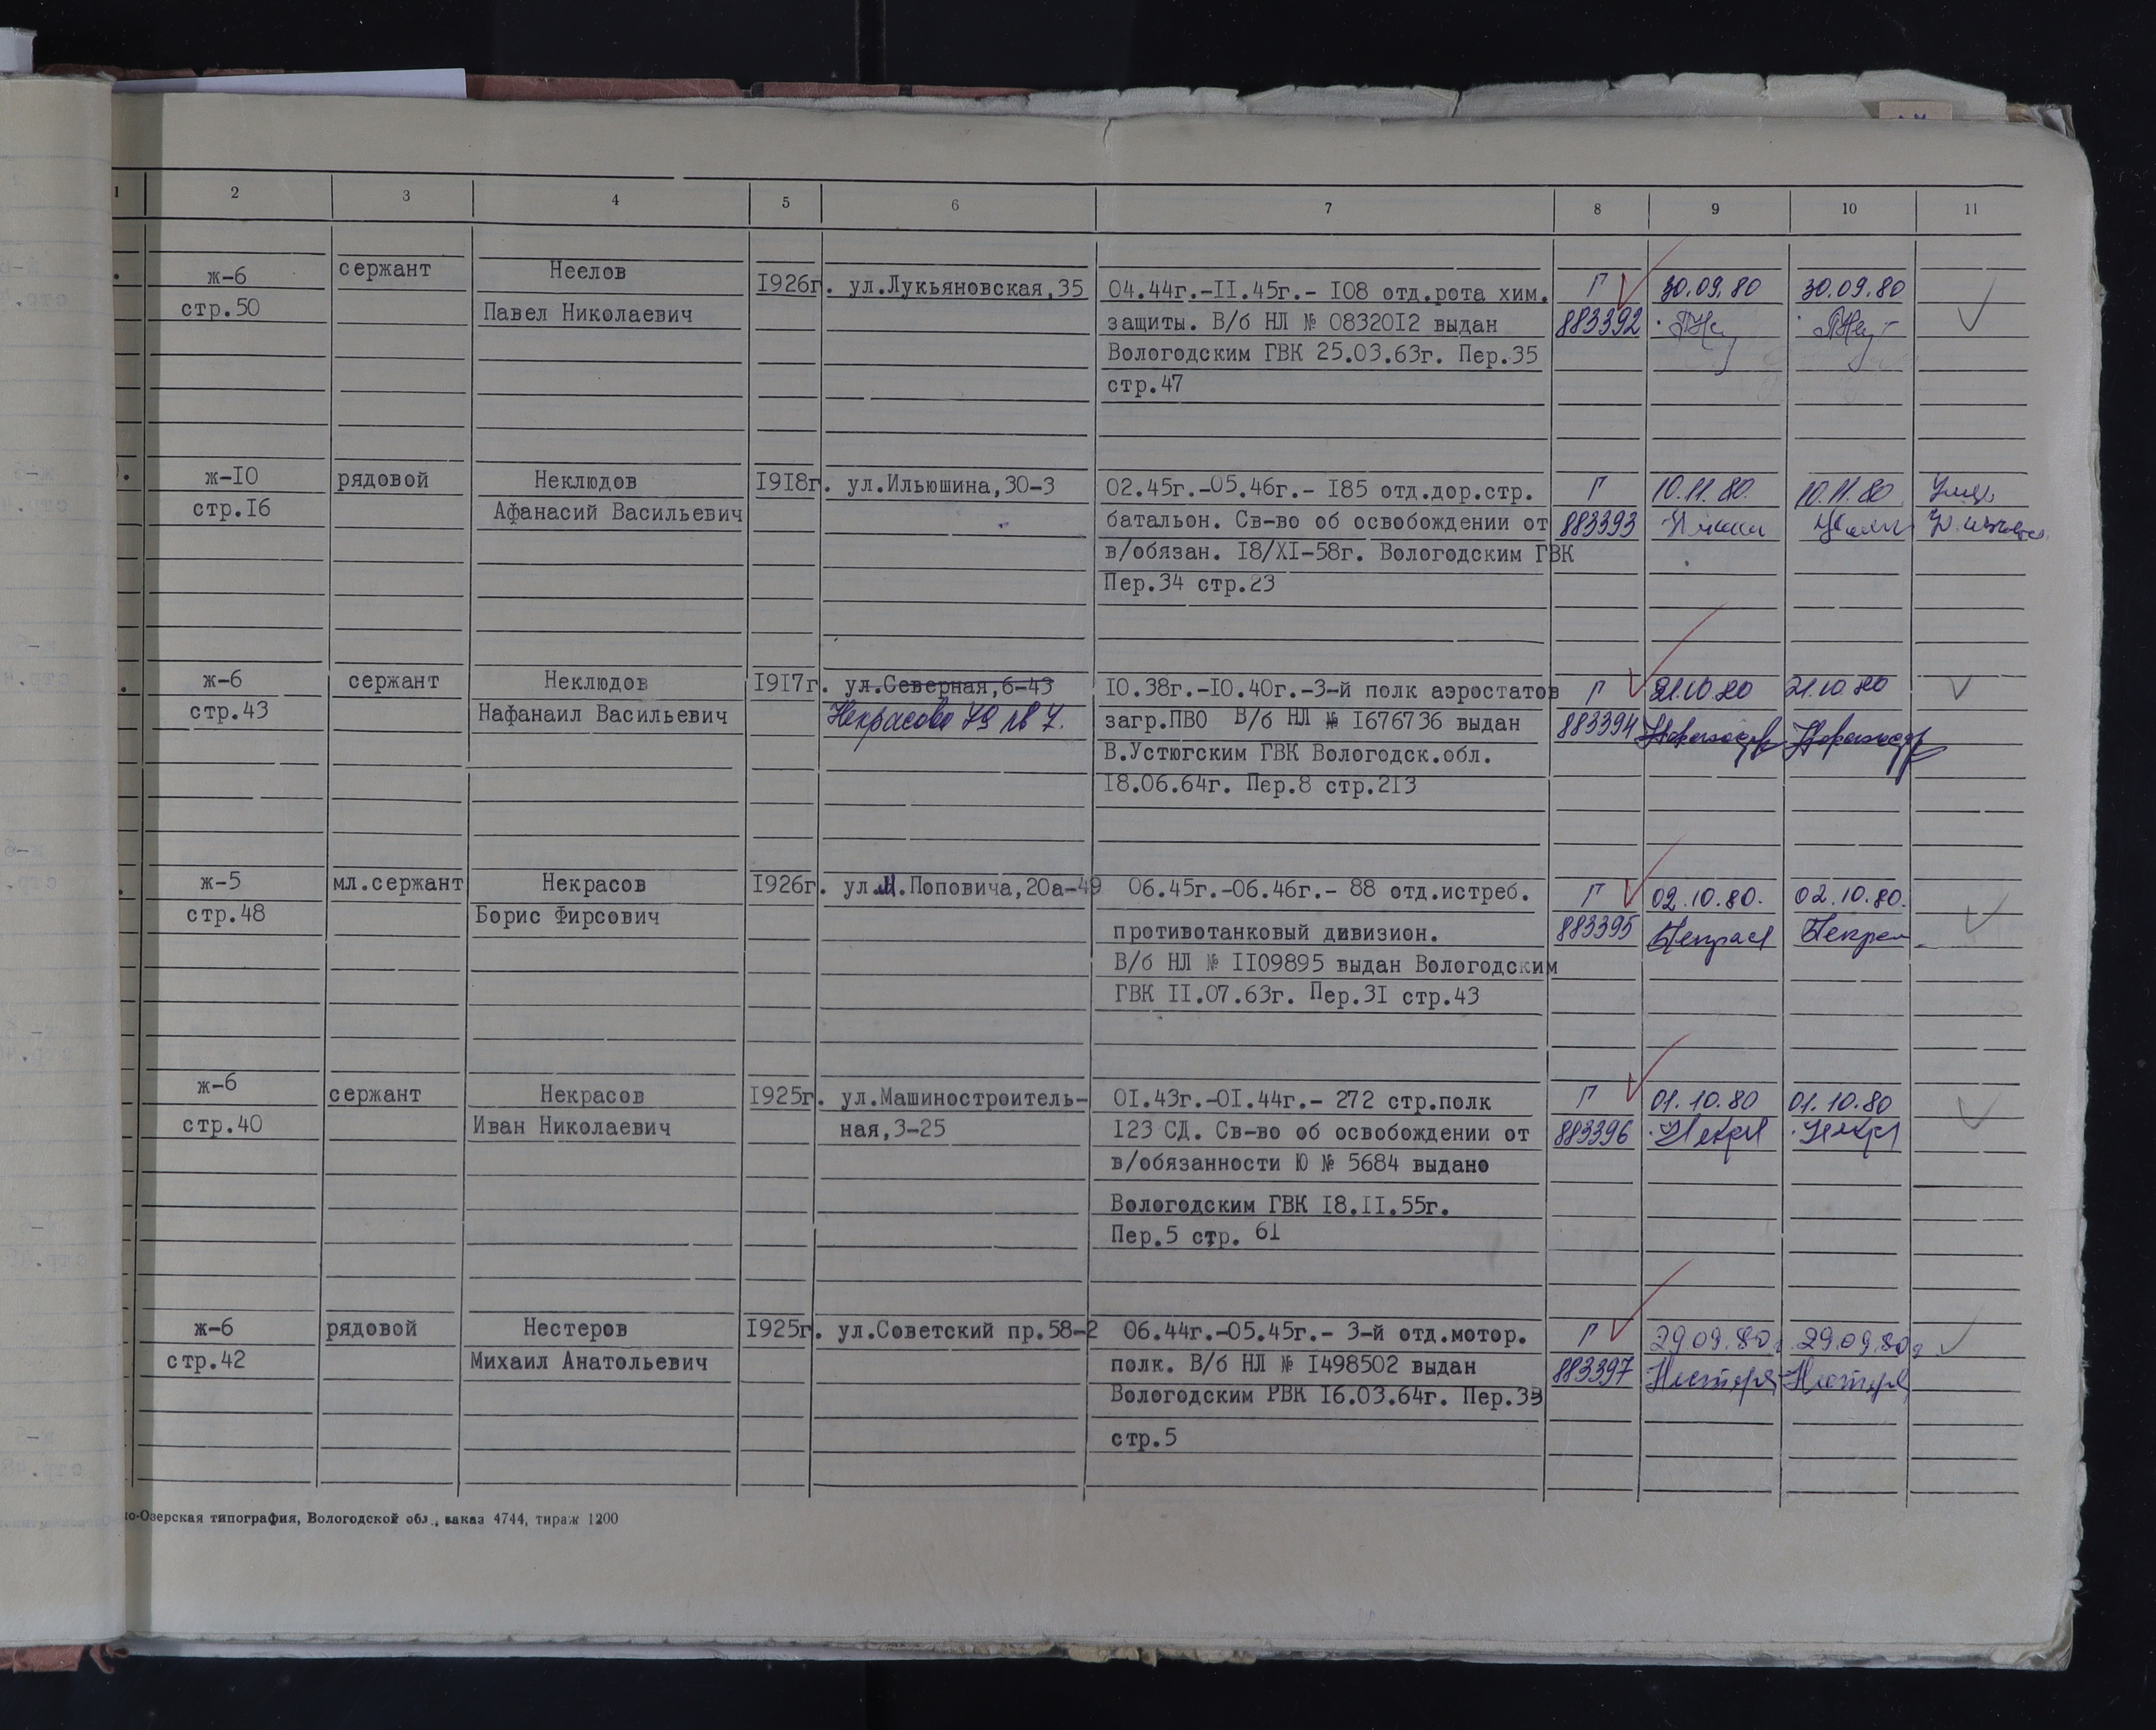 1 2 3 4 5 6 7 8 9 10 11
ж-6 сержант Неелов 1926г. ул.Лукьяновская,35 04.44г.-II.45г.- I08 отд.рота хим. Г 30.09.80 30.09.80
стр.50 Павел Николаевич защиты. В/б НЛ № 08320I2 выдан 883392
Вологодским ГВК 25.03.63г. Пер.35
стр.47
ж-IO рядовой Неклюдов I9I8г. ул.Ильюшина,30-3 02.45г.-05.46г.- I85 отд.дор.стр. Г 10.11.80. 10.11.80
стр.I6 Афанасий Васильевич батальон. Св-во об освобождении от 883393
в/обязан. I8/XI-58г. Вологодским ГВК
Пер.34 стр.23
ж-6 сержант Неклюдов I9I7г. ул.Северная,6-43 IO.38г.-IO.40г.-3-й полк аэростатов Г 21.10.80 21.10.80
стр.43 Нафанаил Васильевич Некрасова 79 кв 7. загр.ПВО В/б НЛ № I676736 выдан 883394
В.Устюгским ГВК Вологодск.обл.
I8.06.64г. Пер.8 стр.2I3
ж-5 мл.сержант Некрасов I926г. ул.М.Поповича,20а-49 06.45г.-06.46г.- 88 отд.истреб. Г 02.10.80. 02.10.80.
стр.48 Борис Фирсович противотанковый дивизион. 883395 Некрас
В/б НЛ № II09895 выдан Вологодским
ГВК II.07.63г. Пер.3I стр.43
ж-6 сержант Некрасов I925г. ул.Машиностроитель- OI.43г.-OI.44г.- 272 стр.полк Г 01.10.80 01.10.80
стр.40 Иван Николаевич ная,3-25 I23 СД. Св-во об освобождении от 883396 Некр Некр
в/обязанности Ю № 5684 выдано
Вологодским ГВК I8.II.55г.
Пер.5 стр. 61
ж-6 рядовой Нестеров I925г. ул.Советский пр.58-2 06.44г.-05.45г.- 3-й отд.мотор. Г 29.09.80г 29.09.80г
стр.42 Михаил Анатольевич полк. В/б НЛ № I498502 выдан 883397 Нестеров Нестеров
Вологодским РВК I6.03.64г. Пер.33
стр.5
о-Озерская типография, Вологодской обл., заказ 4744, тираж 1200